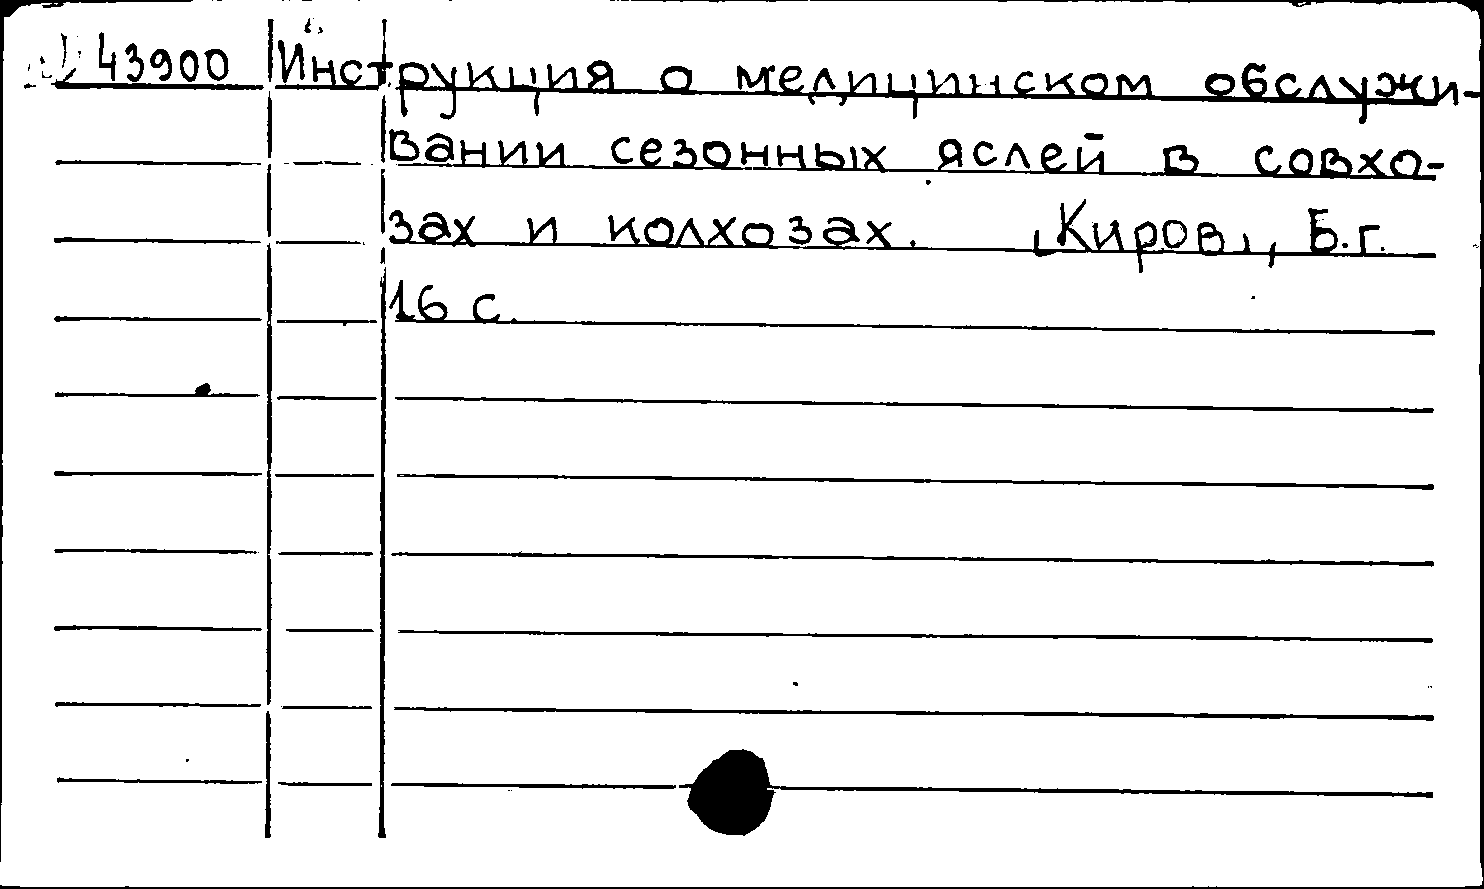 43900 Инструкция о медицинском обслужи-
вании сезонных яслей в совхо-
зах и колхозах. [Киров], Б.г.
16 с.